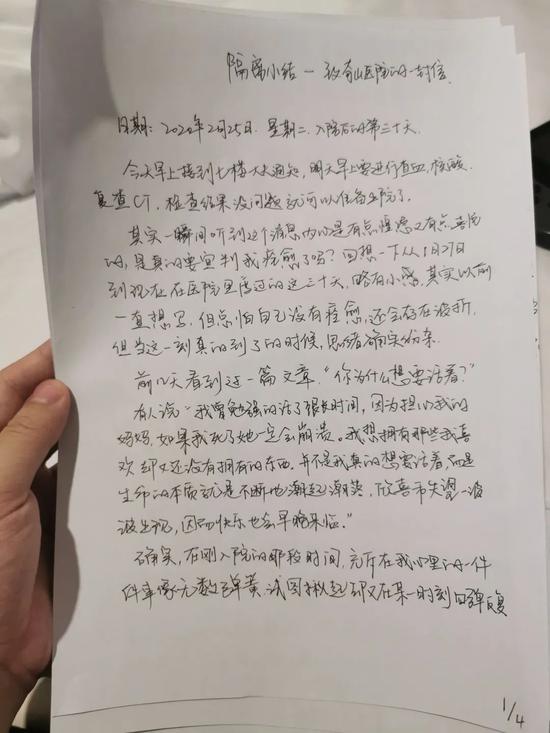 隔离小结—致奇山医院的一封信
日期：2020年2月25日. 星期二. 入院后的第三十天.
今天早上接到七楼大夫通知，明天早上要进行查血，核酸.
复查CT，检查结果没问题就可以准备出院了.
其实一瞬间听到这个消息内心是有点惶恐又有点喜悦
的，是真的要宣判我痊愈了吗？回想一下从1月27日
到现在在医院里度过的这三十天，略有小感，其实以前
一直想写，但总怕自己没有痊愈，还会存在波折，
但当这一刻真的到了的时候，思绪确实纷杂.
前几天看到过一篇文章，“你为什么想要活着？”
有人说“我曾勉强的活了很长时间，因为担心我的
妈妈，如果我死了她一定会崩溃。我想拥有那些我喜
欢却又还没有拥有的东西，并不是我真的想要活着，而是
生命的本质就是不断地潮起潮落，欣喜而失望一波
波出现，因而快乐也会早晚来临.”
确实，在刚入院的那段时间，充斥在我心里的一件
件事像无数弹簧，试图揪起却又在某一时刻回弹反复
1/4